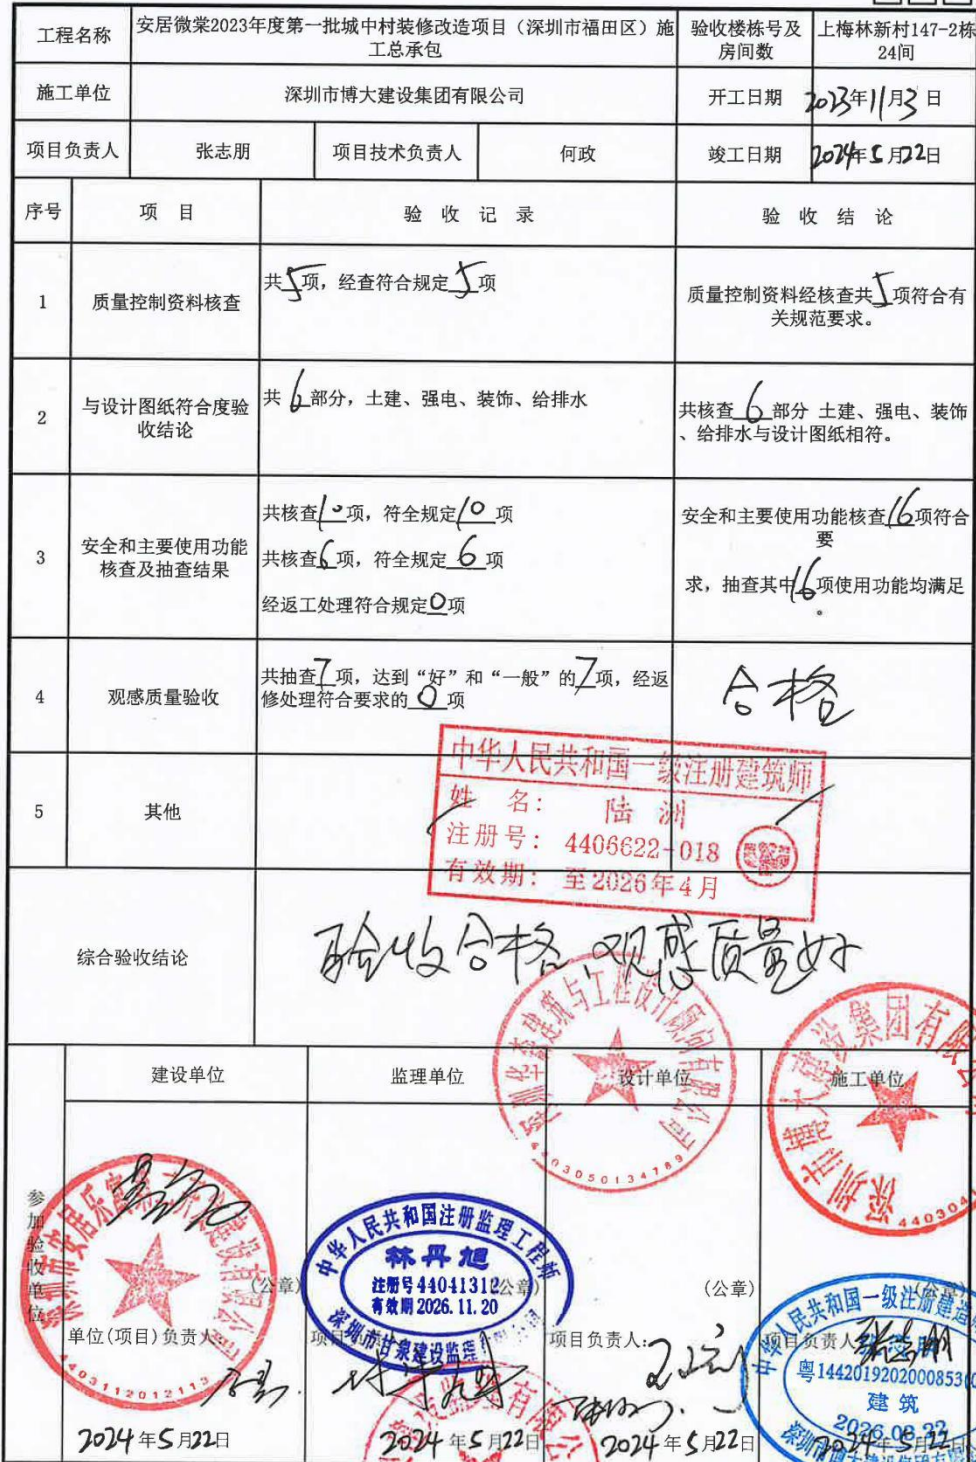 工程名称
安居微棠2023年度第一批城中村装修改造项目（深圳市福田区）施
工总承包
验收楼栋号及
房间数
上梅林新村147-2栋
24间
施工单位
深圳市博大建设集团有限公司
开工日期
2023年11月3日
项目负责人
张志朋
项目技术负责人
何政
竣工日期
2024年5月22日
序号
项 目
验 收 记 录
验 收 结 论
1
质量控制资料核查
共5项，经查符合规定5项
质量控制资料经核查共5项符合有
关规范要求。
2
与设计图纸符合度验
收结论
共6部分，土建、强电、装饰、给排水
共核查6部分 土建、强电、装饰
、给排水与设计图纸相符。
3
安全和主要使用功能
核查及抽查结果
共核查10项，符全规定10项
共核查6项，符全规定6项
经返工处理符合规定0项
安全和主要使用功能核查16项符合
要
求，抽查其中16项使用功能均满足
。
4
观感质量验收
共抽查7项，达到“好”和“一般”的7项，经返
修处理符合要求的0项
合格
5
其他
中华人民共和国一级注册建筑师
姓 名： 陆洲
注册号： 4406622-018
有效期： 至2026年4月
综合验收结论
验收合格，观感质量好
参加验收单位
建设单位
监理单位
设计单位
施工单位
深圳市博大建设集团有限公
44030
4403050134789
4403112012113
中华人民共和国注册监理工程师
林丹旭
注册号44041312
有效期2026.11.20
深圳市甘泉建设监理
（公章）
（公章）
人民共和国一级注册建造
粤1442019202000853
建筑
单位(项目)负责人
项目负责人：
项目负责人
张志朋
2024年5月22日
2024年5月22日
2024年5月22日
2024年5月22日